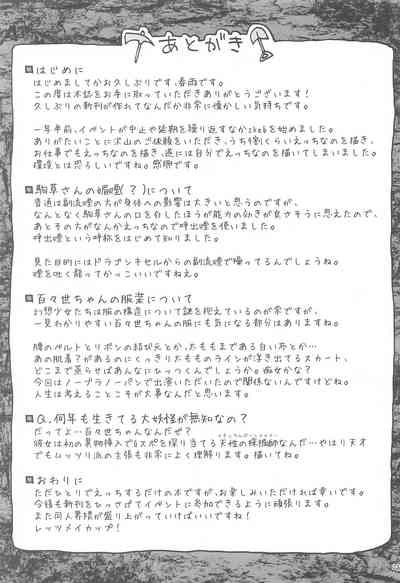 あとがき
はじめに
はじめましてかお久しぶりです、春雨です。
この度は本誌をお手に取っていただきありがとうございます！
久しぶりの新刊が作れてなんだか非常に懐かしい気持ちです。
一年半前、イベントが中止や延期を繰り返すなかskebを始めました。
ありがたいことに沢山のご依頼をいただき、うち9割くらいえっちなのを描き、
お仕事でもえっちなのを描き、遂には自分でえっちなのを描いてしまいました。
環境とは恐ろしいですね。感謝です。
駒草さんの媚煙(？)について
普通は副流煙の方が身体への影響は大きいと思うのですが、
なんとなく駒草さんの口を介したほうが能力の効きが良さそうに思えたので、
あとその方がなんかえっちなので呼出煙を使いました。
呼出煙という呼称をはじめて知りました。
見た目的にはドラゴンキセルからの副流煙で喋ってるんでしょうね。
煙を吐く龍ってかっこいいですねえ。
百々世ちゃんの服装について
幻想少女たちは服の構造について謎を抱えているのが常ですが、
一見わかりやすい百々世ちゃんの服にも気になる部分はありますね。
腰のベルトとリボンの結び元とか、太ももまである白い布とか…
あの肌着？があるのにくっきり太もものラインが浮き出てるスカート、
どこまで蒸らせばあんなにひっつくんでしょうか。痴女かな？
今回はノーブラノーパンで出演いただいたので関係ないんですけどね。
人生は考えることこそが大事なんだと思います。
Q.何年も生きてる大妖怪が無知なの？
だってよ…百々世ちゃんなんだぜ？
彼女は初の異物挿入でGスポを探り当てる天性の採掘師なんだ…やはり天才
でもムッツリ派の主張も非常によく理解ります。描いてね。
おわりに
ただひとりでえっちするだけの本ですが、お楽しみいただければ幸いです。
今後も新刊をひっさげてイベントに参加できるように頑張ります。
また同人界隈が盛り上がっていけばいいですね！
レッツメイカップ！